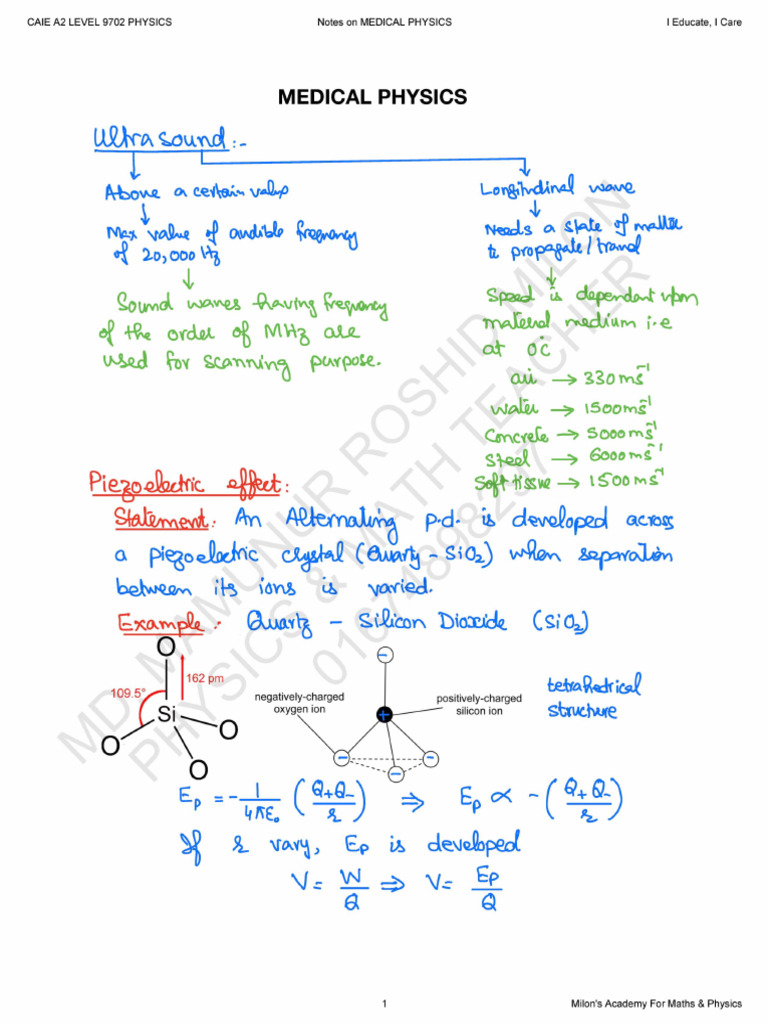 CAIE A2 LEVEL 9702 PHYSICS Notes on MEDICAL PHYSICS I Educate, I Care
MEDICAL PHYSICS
Ultrasound:-
Above a certain value
Max value of audible frequency
of 20,000 Hz
Sound waves having frequency
of the order of MHz are
used for scanning purpose.
Longitudinal wave
Needs a state of matter
to propagate/travel
Speed is dependant upon
material medium i.e
at 0°C
air → 330 ms⁻¹
Water → 1500 ms⁻¹
Concrete → 5000 ms⁻¹
Steel → 6000 ms⁻¹
Soft tissue → 1500 ms⁻¹
Piezoelectric effect:
Statement: An Alternating p.d. is developed across
a piezoelectric crystal (Quartz – SiO₂) when separation
between its ions is varied.
Example: Quartz – Silicon Dioxide (SiO₂)
O
162 pm
109.5°
Si
O
O
O
negatively-charged
oxygen ion
positively-charged
silicon ion
tetrahedrical
structure
Eₚ = - 1/4πε₀ (Q₊Q₋/r) ⇒ Eₚ ∝ - (Q₊Q₋/r)
If r vary, Eₚ is developed
V = W/Q ⇒ V = Eₚ/Q
MD. MAMUNUR ROSHID MILON
PHYSICS & MATH TEACHER
01674898297
1 Milon's Academy For Maths & Physics